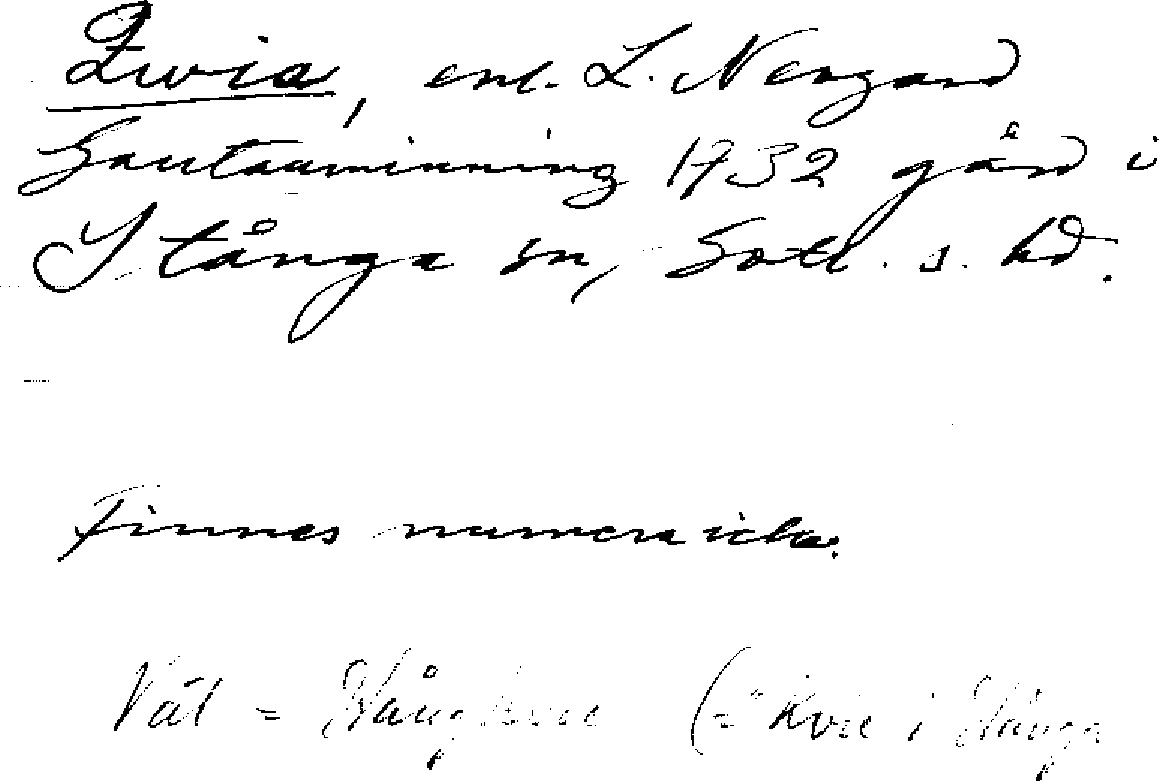 Qwia, enl. L. Neogard
Gautauminning 1732 gård i
Stånga sn, Gotl. s. hd.
Finnes numera icke.
Väl = Stångkvie (= Kvie i Stånga